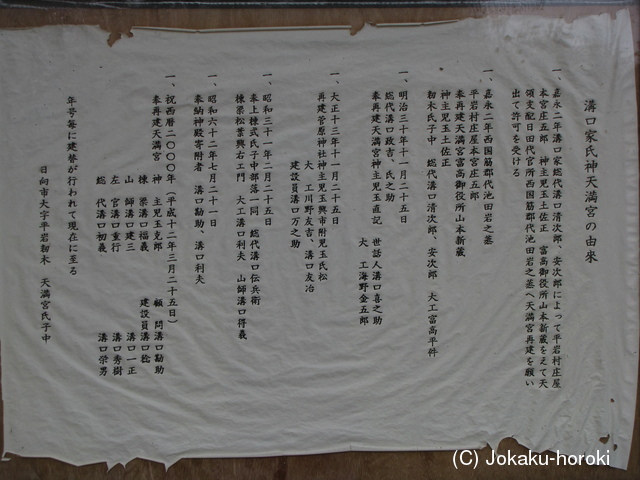 溝口家氏神天満宮の由来
一、嘉永二年溝口家総代溝口清次郎、安次郎によって平岩村庄屋
本宮庄五郎 神主児玉土佐正 富高御役所山本新蔵をえて天
領支配日田代官所西国筋郡代池田岩之蒸へ天満宮再建を願い
出て許可を受ける
一、嘉永二年西国筋郡代池田岩之蒸
平岩村庄屋本宮庄五郎
奉再建天満宮富高御役所山本新蔵
神主児玉土佐正
籾木氏子中 総代溝口清次郎、安次郎 大工富高平件
一、明治三十年十一月二十五日
総代溝口政吉、氏之助 世話人溝口喜之助
奉再建天満宮神主児玉直記 大 工海野金五郎
一、大正十三年十一月二十五日
再建菅原神社神主児玉興寄附児玉氏松
大 工川野友吉、溝口友治
建設員溝口万之助
一、昭和三十一年二月二十五日
奉上棟式氏子中部落一同 総代溝口伝兵衛
棟梁松葉興右エ門 大工溝口利夫 山師溝口得義
一、昭和六十二年七月二十一日
奉納神殿寄附者 溝口勘助、溝口利夫
一、祝西暦二〇〇〇年(平成十二年三月二十五日)
奉再建天満宮 神 主児玉克郎 顧 問溝口勘助
棟 梁溝口福義 建設員溝口稔
山 師溝口建三 溝口一正
左 官溝口重行 溝口秀樹
総 代溝口初義 溝口栄男
年号毎に建替が行われて現在に至る
日向市大字平岩籾木 天満宮氏子中
(C) Jokaku-horoki